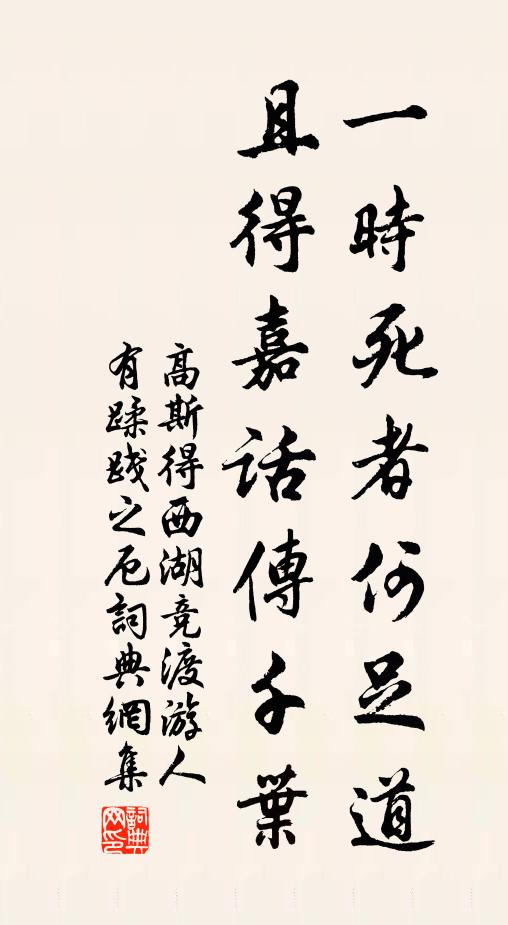 一時死者何足道
且得嘉話傳千葉
高斯得西湖竞渡游人
有蹂踐之厄詞典網集
詞典网印